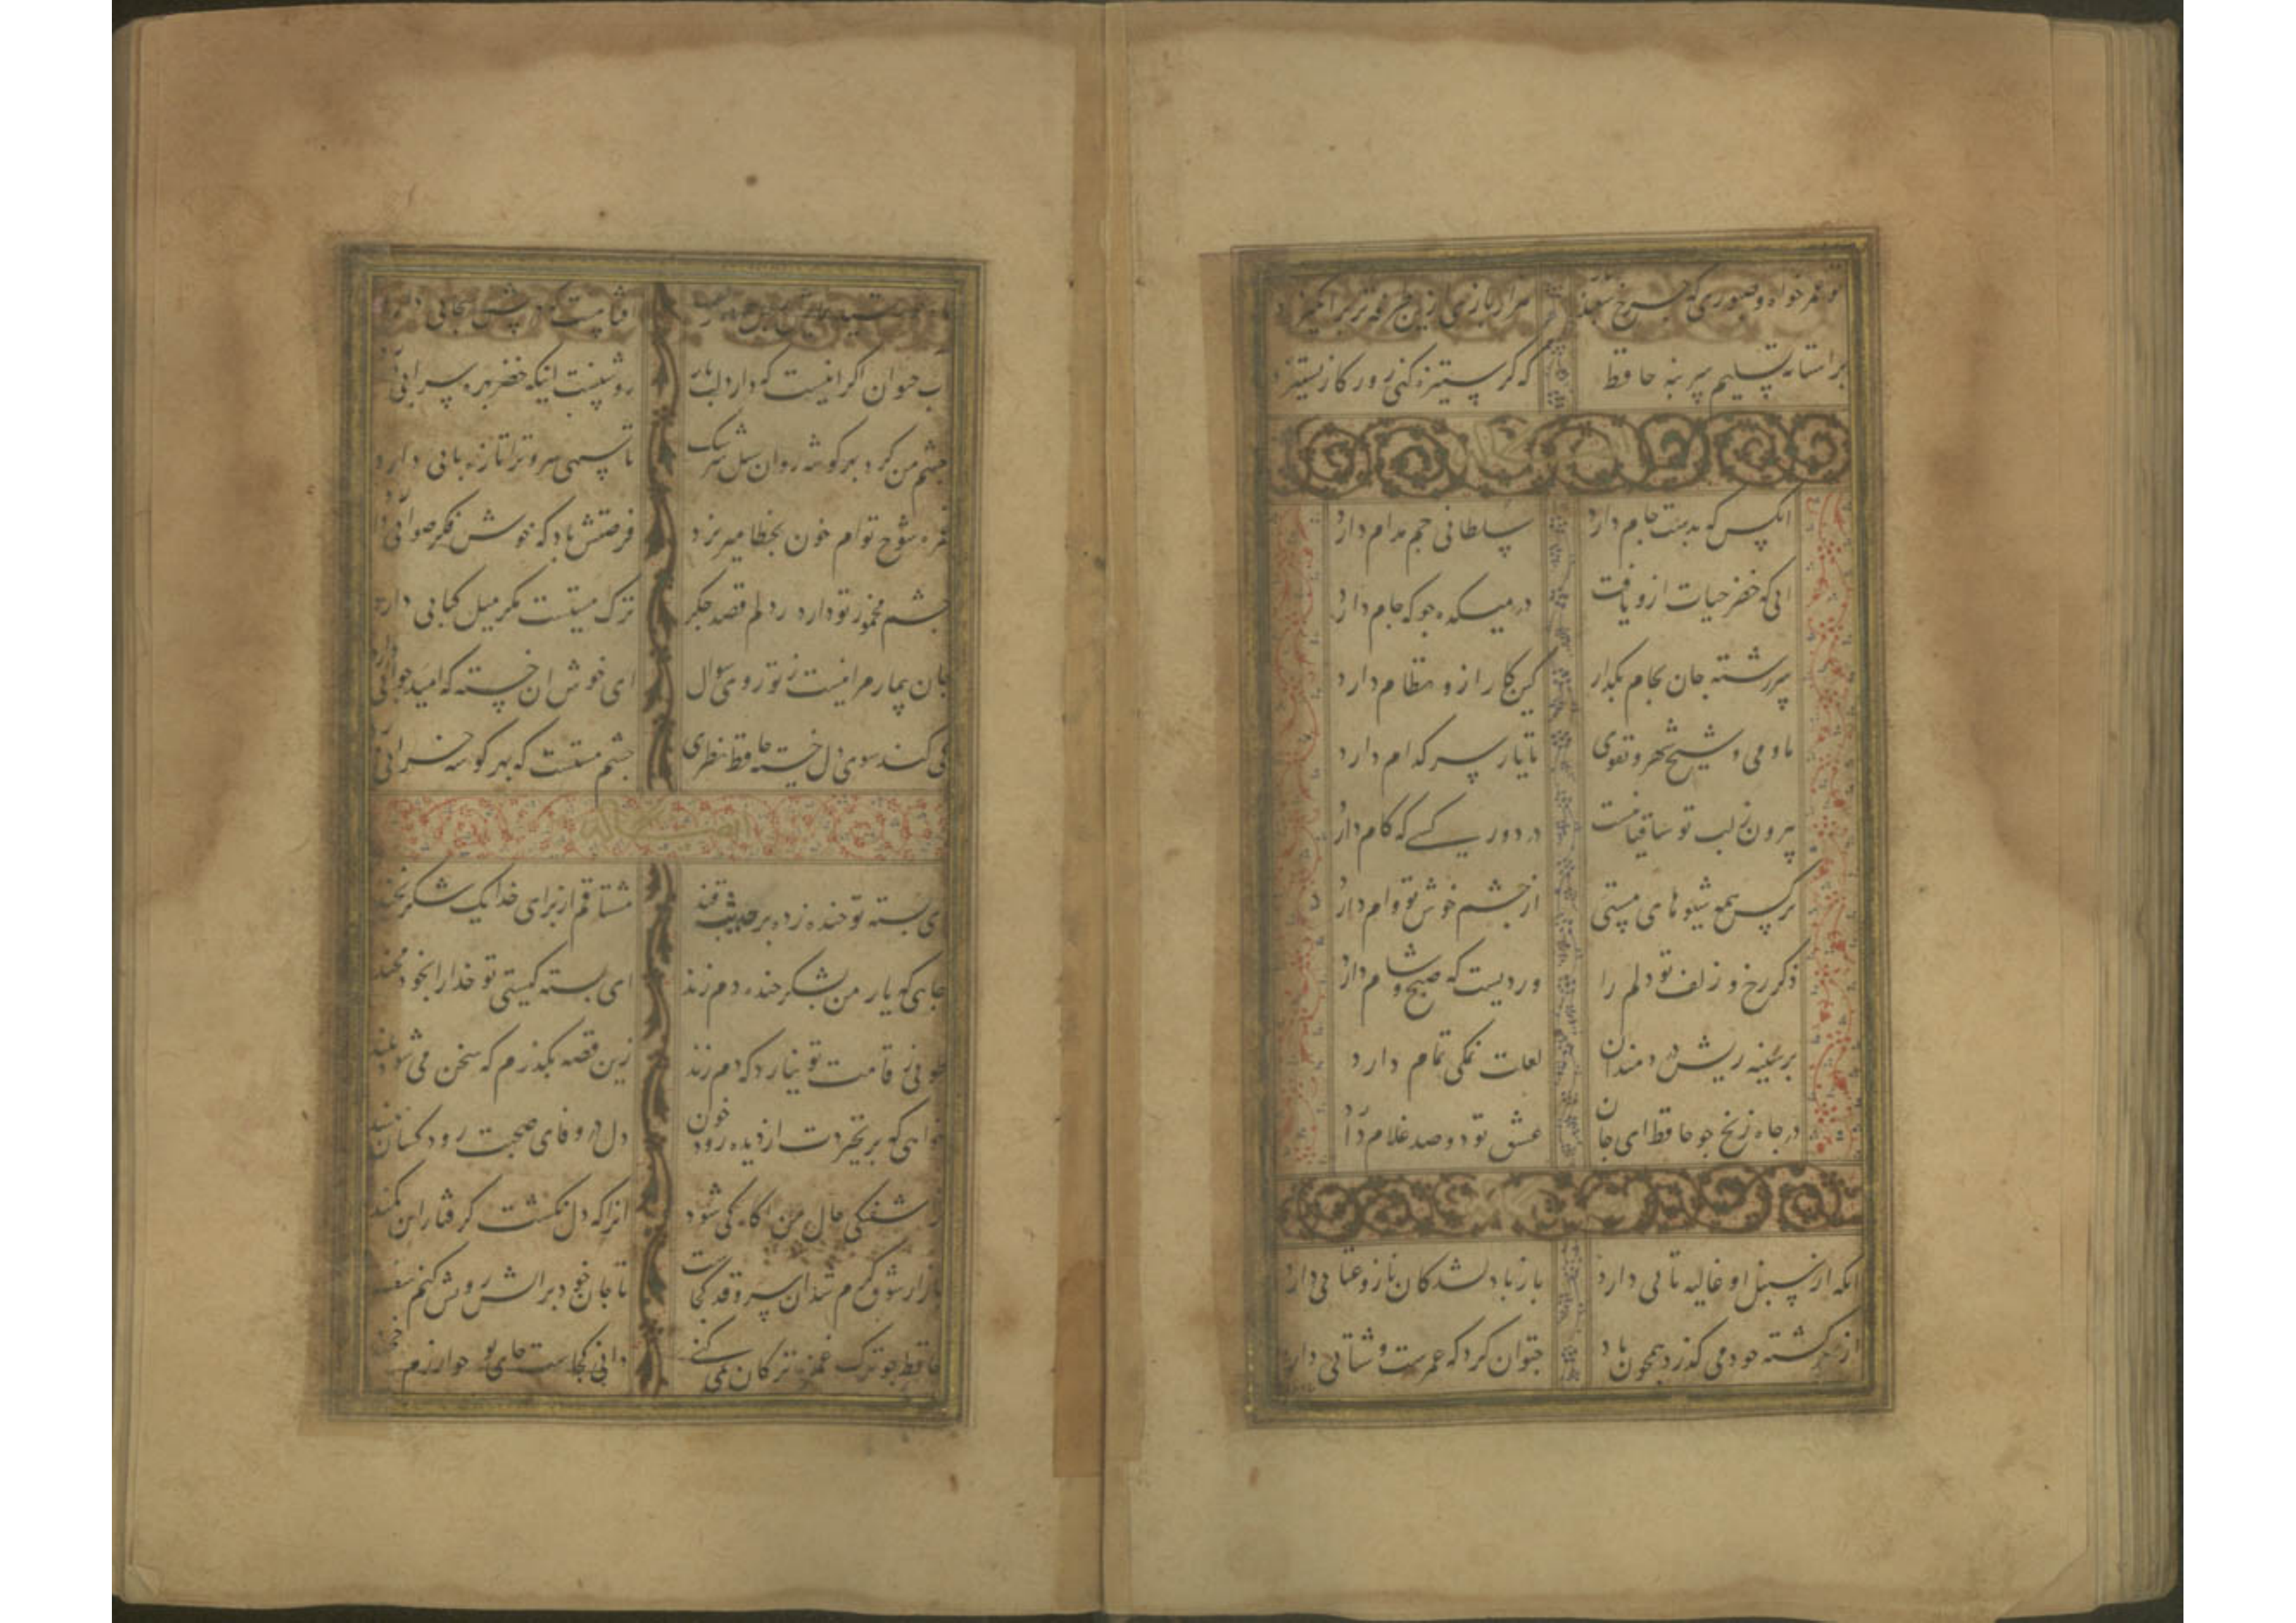 و عمر خواه و صبوری که چرخ شعبده هزار بازی زین طرفه‌تر برانگیزد
بر استانه تسلیم سر بنه حافظ که کر ستیزه کنی روزکار بستیزد
انکس که بدست جام دارد سلطانی جم مدام دارد
ابی که خضر حیات ازو یافت در میکده جو که جام دارد
سررشته جان بجام بکذار کین کار ازو نظام دارد
ما و می و شیخ شهر و تقوی تا یار سر کدام دارد
بیرون ز لب تو ساقیا نیست در دور کسی که کام دارد
نرکس همه شیوهای مستی از چشم خوش تو وام دارد
ذکر رخ و زلف تو دلم را وردیست که صبح و شام دارد
بر سینه ریش دردمندان لعلت نمکی تمام دارد
در چاه زنخ جو حافظ ای جان عشق تو دو صد غلام دارد
انکه از سنبل او غالیه تابی دارد باز با دلشدکان ناز و عتابی دارد
از سر کشته خود می کذرد همچون باد چتوان کرد که عمرست و شتابی دارد
افتابیست که در پیش سحابی دارد
اب حیوان اکر اینست که دارد لب یار روشنست اینکه خضر بهره سرابی دارد
چشم من کرد بهر کوشه روان سیل سرشک تا سهی سرو ترا تازه بابی دارد
غمزه شوخ توام خون بخطا میریزد فرصتش باد که خوش فکر صوابی دارد
چشم مخمور تو دارد ز دلم قصد جکر ترک مستست مکر میل کبابی دارد
جان بیمار مرا نیست ز تو روی سوال ای خوش ان خسته که امید جوابی دارد
کی کند سوی دل خسته حافظ نظری چشم مستت که بهر کوشه خرابی دارد
ایضا له
ای بسته تو خنده زده بر حدیث قند مشتاقم از برای خدا یک شکر بخند
جایی که یار من بشکرخنده دم زند ای بسته کیستی تو خدا را بخود مخند
طوبی ز قامت تو نیارد که دم زند زین قصه بکذرم که سخن می شود بلند
خواهی که بر نخیزدت از دیده رود خون دل در وفای صحبت رود کسان مبند
ز اشفتکی حال من اکاه کی شود انرا که دل نکشت کرفتار این کمند
بازار شوق کرم شد ان سروقد کجاست تا جان خود بر اتش رویش کنم سپند
حافظ جو ترک غمزه ترکان نمی کنی دانی کجاست جای تو خوارزم یا خجند